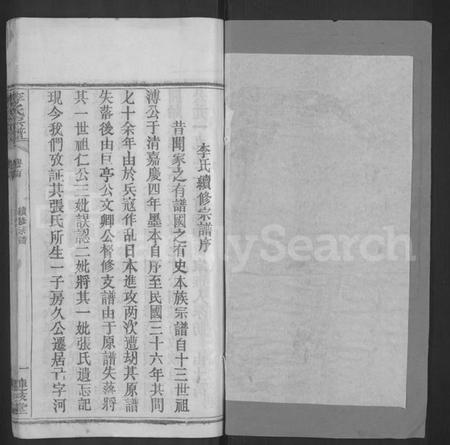 李氏續修宗譜序
昔聞家之有譜國之有史本族宗譜自十三世祖
溥公于清嘉慶四年墨本自序至民國三十六年其間
七十余年由於兵寇作乱日本進攻两次遭胡其原譜
失落後由巨亭公文卿公督修支譜由于原譜失落將
其一世祖仁公三妣誤認二妣將其一妣張氏遺忘記
現今我們攷証其張氏所生一子房久公遷居古字河
續修宗譜
一
MySearch